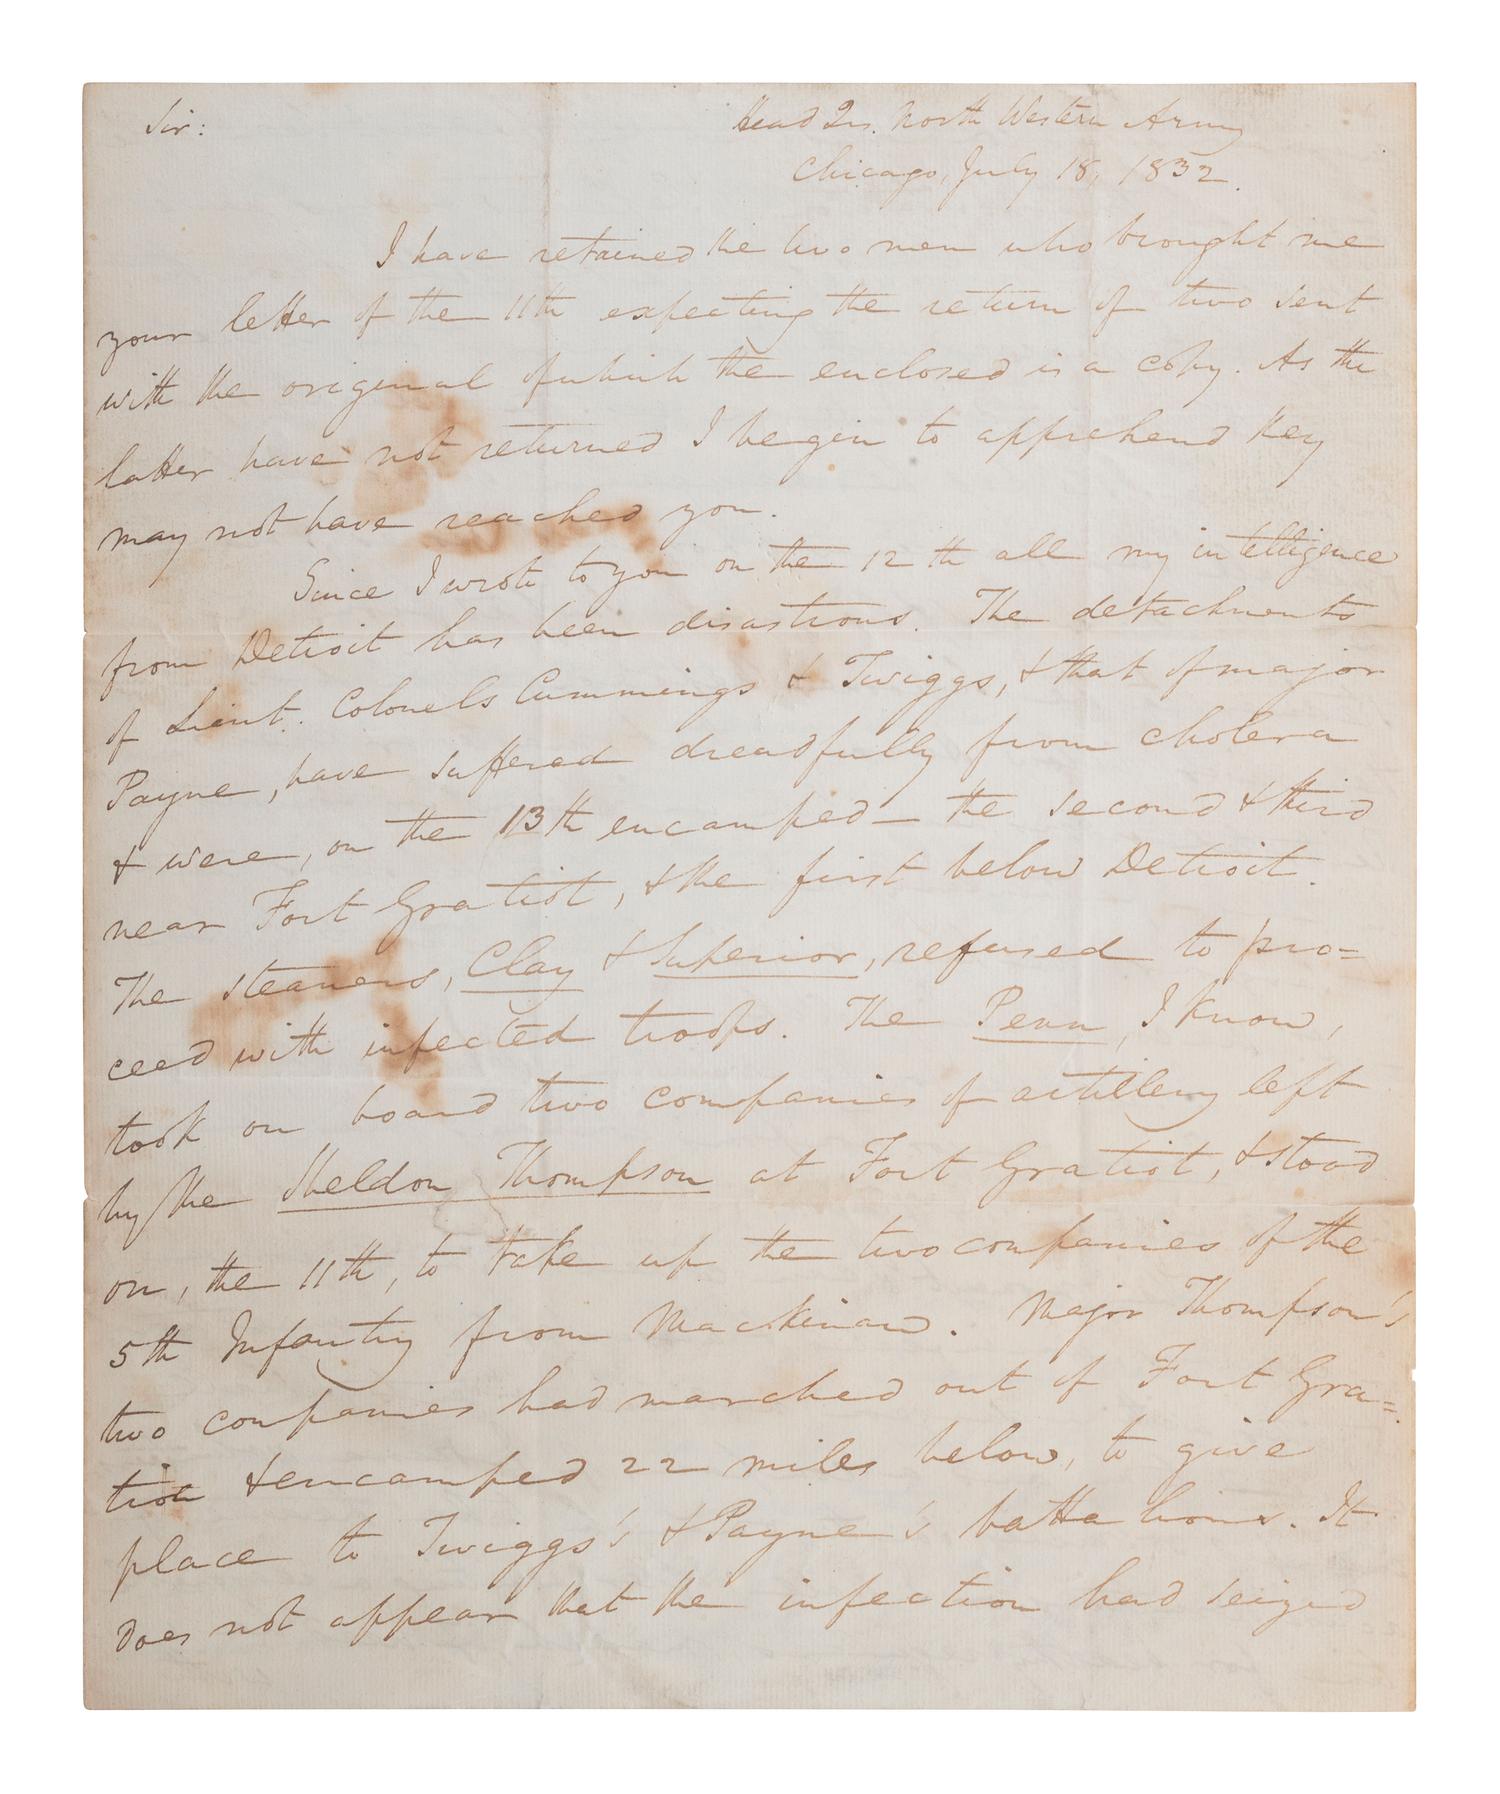 Sir:
Head Qrs. North Western Army
Chicago, July 18, 1832.
I have retained the two men who brought me
your letter of the 11th expecting the return of two sent
with the original of which the enclosed is a copy. As the
latter have not returned I begin to apprehend they
may not have reached you.
Since I wrote to you on the 12th all my intelligence
from Detroit has been disastrous. The detachments
of Lieut. Colonels Cummings & Twiggs, & that of major
Payne, have suffered dreadfully from cholera
& were, on the 13th encamped — the second & third
near Fort Gratiot, & the first below Detroit.
The steamers, Clay & Superior, refused to pro=
ceed with infected troops. The Penn, I know,
took on board two companies of artillery left
by the Sheldon Thompson at Fort Gratiot, & stood
on, the 11th, to take up the two companies of the
5th Infantry from Mackinaw. Major Thompson's
two companies had marched out of Fort Gra=
tiot & encamped 22 miles below, to give
place to Twiggs's & Payne's battalions. It
does not appear that the infection had seized